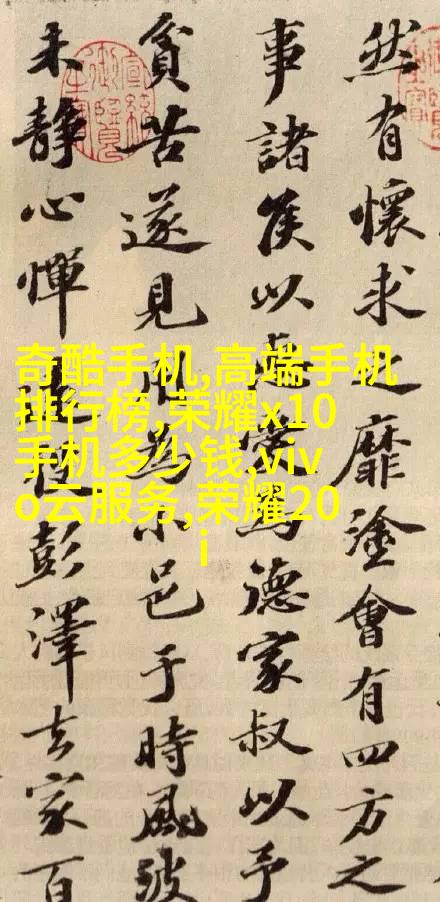 然有懷求之靡塗會有四方之
事諸侯以惠愛為德家叔以予
貧苦遂見用為小邑于時風波
未靜心憚遠役彭澤去家百
奇酷手机,高端手机
排行榜,荣耀x10
手机多少钱,viv
o云服务,荣耀20
i